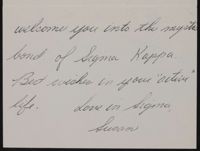 welcome you into the mystic
bond of Sigma Kappa.
Best wishes in your "active"
life.     Love in Sigma,
Susan